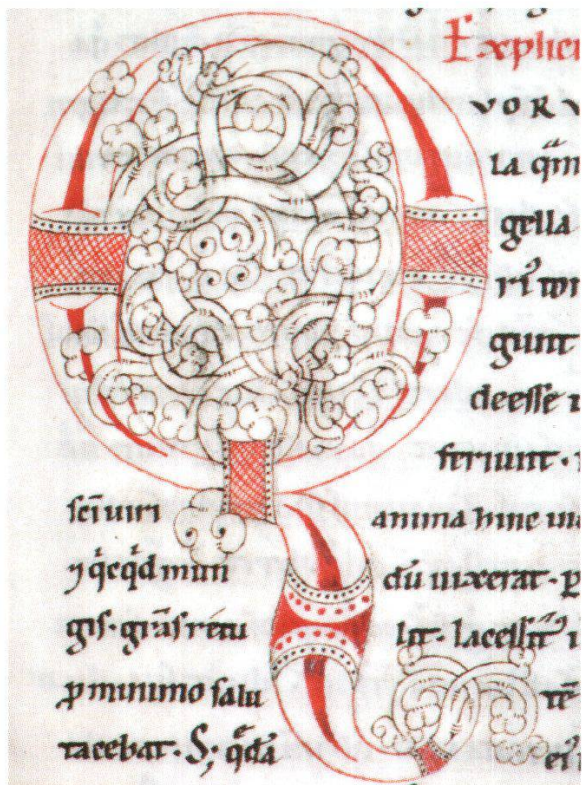 Explici
VORV
la q̄m
gella
giunt
deesse
feriunt ·
sc̄i uiri anima hinc
q̄cq̄d mun dū uixerat · p̱
gis · grās retu lit · lacessit
p̱ minimo salu tē
tacebat · S; q̄dā ei